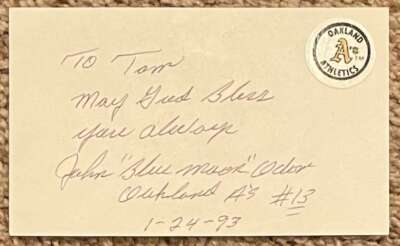 OAKLAND
A's TM
ATHLETICS
To Tom
May God Bless
you always
John "Blue Moon" Odom
Oakland A's #13
1-24-93